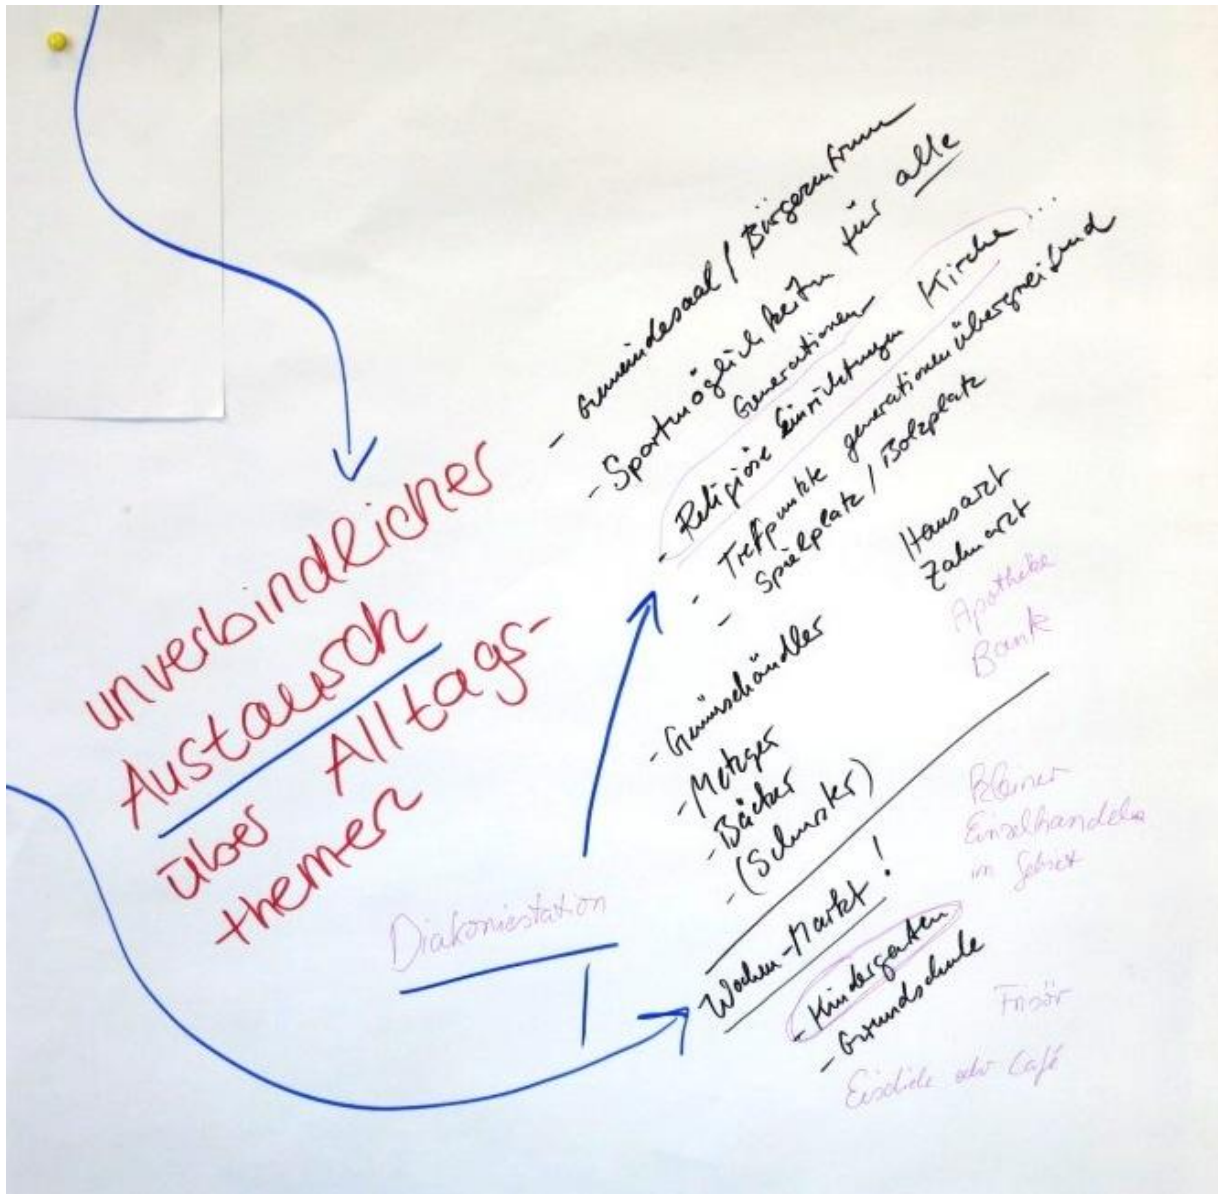 unverbindlicher
Austausch
über Alltags-
themen
Diakoniestation
- Gemeindesaal / Bürgerzentrum
- Sportmöglichkeiten für alle
Generationen
- Religiöse Einrichtungen Kirche...
- Treffpunkte generationenübergreifend
- Spielplatz / Bolzplatz
Hausarzt
Zahnarzt
Apotheke
Bank
- Gemüsehändler
- Metzger
- Bäcker
- (Schuster)
Wochen-Markt!
- Kindergarten
- Grundschule
Kleiner
Einzelhandel
im Gebiet
Frisör
Eisdiele oder Café